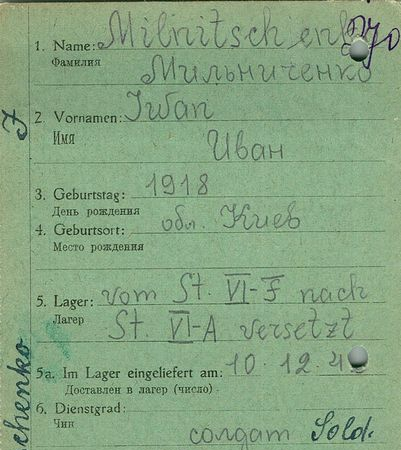 1. Name: Milnitschenko 270
Фамилия Мильниченко
2. Vornamen: Iwan
Имя Иван
3. Geburtstag: 1918
День рождения
4. Geburtsort: обл. Киев
Место рождения
5. Lager: vom St. VI-F nach
Лагерь St. VI-A versetzt
5a. Im Lager eingeliefert am: 10.12.42
Доставлен в лагерь (число)
6. Dienstgrad:
Чин солдат Sold.
chenko